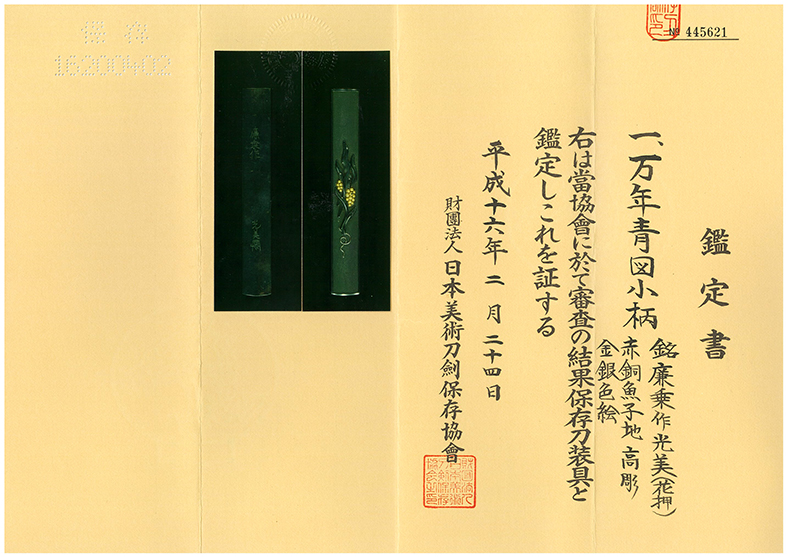 № 445621
鑑定書
一、万年青図小柄
銘 廉乗作 光美(花押)
赤銅魚子地 高彫
金銀色絵
右は當協會に於て審査の結果保存刀装具と
鑑定しこれを証する
平成十六年 二 月 二十四日
財團法人 日本美術刀劍保存協會
保存
16200402